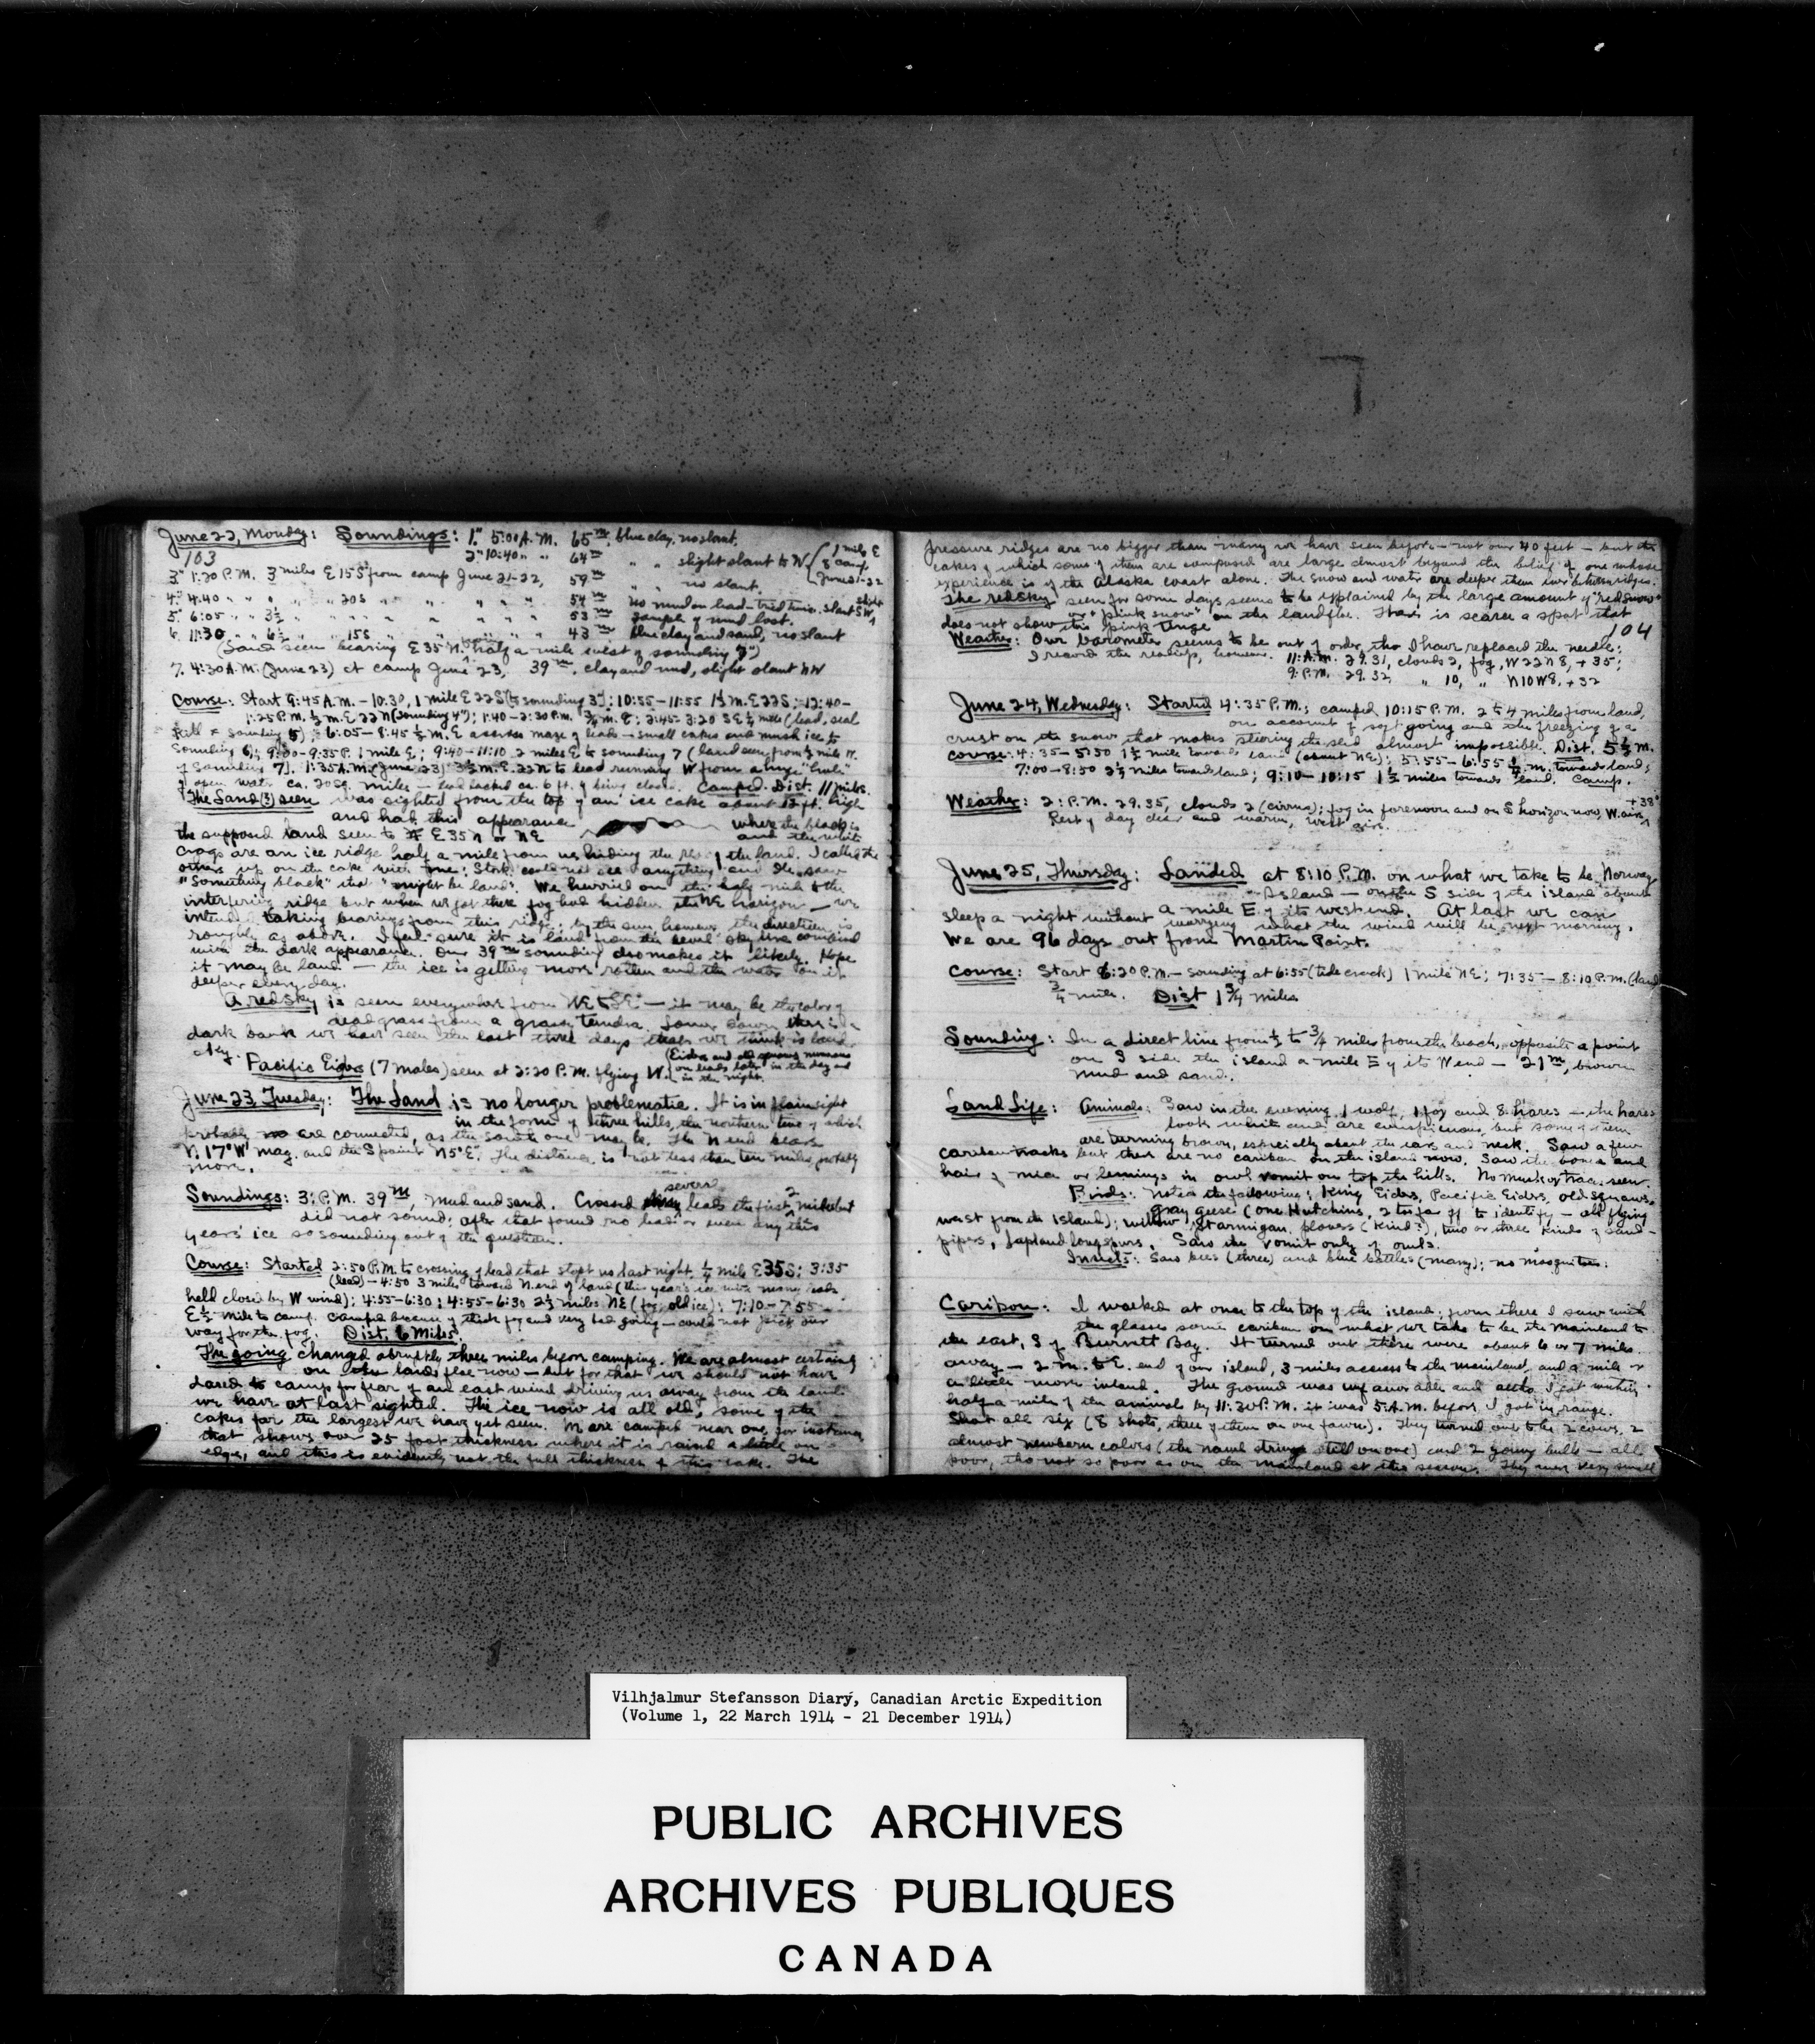 June 22, Monday: Soundings: 1." 5:00 A.M. 65 m, blue clay, no slant.
103
2" 10:40 " " 64 m " " slight slant to W { 1 mile E
of camp
June 21-22
3" 1:30 P.M. 3 miles E 15 S from camp June 21-22, 59 m " " no slant.
4." 4.40 " " " " 20 S " " " " " 54 m no mud on lead - tried twice. Slant SW
slight
5." 6:05 " " 3½ " " " " " " " 53 m sample of mud lost.
6. 11:30 " " 6½ " " 15 S " " " " " 43 m blue clay and sand, no slant
(Land seen bearing E 35 N. half a mile west of sounding 7")
7. 4:30 A.M. (June 23) at camp June 23, 39 m, clay and mud, slight slant NW
Course: Start 9:45 A.M. - 10.30, 1 mile E 22 S (to sounding 3"); 10:55 - 11:55 1½ M. E 22 S; 12:40 -
1:25 P.M. ½ m. E 22 N (sounding 4"); 1:40 - 2:30 P.M. ¾ m. E; 2:45 - 3:20 SE ½ mile (lead, seal
kill & sounding 5); 6:05 - 8:45 ½ m. E across maze of leads - small cakes and mush ice to
sounding 6; 9:00 - 9:35 P. 1 mile E; 9:40 - 11:10 2 miles E to sounding 7 (land seen from ½ mile W.
of sounding 7). 1:35 A.M. (June 23) 3½ m. E 22 N to lead running W from a huge "hole"
of open water ca. 20 sq. miles - lead lacked ca. 6 ft. of being closed. Camped. Dist. 11 miles.
The Land (?) seen was sighted from the top of an ice cake about 12 ft. high
and had this appearance where the black is
the supposed land seen to E 35 N or NE and the white
crags are an ice ridge half a mile from us hiding the rest of the land. I called the
others up on the cake with me: Stork could not see anything and Ole saw
"something black" that "might be land". We hurried on the half mile to the
interfering ridge but when we got there fog had hidden the NE horizon - we
intended taking bearings from this ridge; by the sun, however, the direction is
roughly as above. I feel sure it is land from the level sky line combined
with the dark appearance. Our 39 m sounding also makes it likely. Hope
it may be land - the ice is getting more rotten and the water on it
deeper every day.
A red sky is seen everywhere from NE to SE - it may be the color of
dead grass from a grassy tundra. Lower down there is a
dark bank we have seen the last three days that we think is land
sky.
Pacific Eiders (7 males) seen at 2:20 P.M. flying W. (Eiders and old squaws numerous
on leads later in the day and
in the night.
June 23, Tuesday: The Land is no longer problematic. It is in plain sight
in the form of three hills, the northern two of which
probably are connected, as the south one may be. The N end bears
N. 17° W mag. and the S point N 5° E. The distance is not less than ten miles, probably
more.
Soundings: 3: P.M. 39 m, mud and sand. Crossed several leads the first 2 miles but
did not sound; after that found no lead or even any this
years' ice so sounding out of the question.
Course: Started 2:50 P.M. to crossing of lead that stopt us last night, ¼ mile E 35 S; 3:35
(lead) - 4:50 3 miles toward N. end of land (this year's ice with many leads
held close by W wind); 4:55 - 6:30; 4:55 - 6:30 2½ miles NE (fog, old ice); 7:10 - 7:55
E ½ mile to camp. Camped because of thick fog and very bad going - could not pick our
way for the fog. Dist. 6 Miles.
The going changed abruptly three miles before camping. We are almost certainly
on landsfloe now - but for that we should not have
dared to camp for fear of an east wind driving us away from the land
we have at last sighted. The ice now is all old, some of the
cakes far the largest we have yet seen. We are camped near one, for instance,
that shows over 25 foot thickness where it is raised a little on
edge, and this is evidently not the full thickness of this cake. The
pressure ridges are no bigger than many we have seen before - not over 40 feet - but the
cakes of which some of them are composed are large almost beyond the belief of one whose
experience is of the Alaska coast alone. The snow and water are deeper than ever between ridges.
The red sky seen for some days seems to be explained by the large amount of "red snow"
or "pink snow" on the landsfloe. There is scarce a spot that
does not show this pink tinge.
104
Weather: Our barometer seems to be out of order, tho I have replaced the needle;
I record the readings, however. 11: A.M. 29.31, clouds 2, fog, W 22 N 8, + 35;
9: P.M. 29.32, " 10, " N 10 W 8, + 32
June 24, Wednesday: Started 4:35 P.M.; camped 10:15 P.M. 2 to 4 miles from land,
on account of soft going and the freezing of a
crust on the snow that makes steering the sled almost impossible. Dist. 5½ m.
Course: 4:35 - 5:50 1½ mile toward land (about NE); 5:55 - 6:55 ¼ m. towards land;
7:00 - 8:50 2½ miles towards land; 9:10 - 10:15 1½ miles towards land. Camp.
Weather: 2: P.M. 29.35, clouds 2 (cirrus); fog in forenoon and on S horizon now, W. airs, + 38°
Rest of day clear and warm, west airs.
June 25, Thursday: Landed at 8:10 P.M. on what we take to be Norway
Island - on the S side of the island about
a mile E of its west end. At last we can
sleep a night without worrying what the wind will be next morning.
We are 96 days out from Martin Point.
Course: Start 6:20 P.M. - sounding at 6:55 (tide crack) 1 mile NE; 7:35 - 8:10 P.M. (land
¾ mile. Dist 1¾ miles
Sounding: In a direct line from ½ to ¾ miles from the beach, opposite a point
on S side the island a mile E of its W end - 21 m, brown
mud and sand.
Land Life: Animals: Saw in the evening 1 wolf, 1 fox and 8 hares - the hares
look white and are conspicuous, but some of them
are turning brown, especially about the ears and neck. Saw a few
caribou tracks but there are no caribou on the island now. Saw the bones and
hair of mice or lemings in owl vomit on top the hills. No musk ox trace seen.
Birds: noted the following: King Eiders, Pacific Eiders, old squaws,
gray geese (one Hutchins, 2 too far off to identify - all flying
west from the Island); willow ptarmigan, plovers (kind?), two or three kinds of sand-
pipers, lapland longspurs. Saw the vomit only of owls.
Insects: Saw bees (three) and blue bottles (many); no mosquitoes.
Caribou: I walked at once to the top of the island; from there I saw with
the glasses some caribou on what we take to be the mainland to
the east, S of Burnett Bay. It turned out these were about 6 or 7 miles
away - 2 m. to E. end of our island, 3 miles across to the mainland and a mile or
a little more inland. The ground was unfavorable and altho I got within
half a mile of the animal by 11:30 P.M. it was 5: A.M. before I got in range.
Shot all six (8 shots, three of them on one fawn). They turned out to be 2 cows, 2
almost newborn calves (the navel strings still on one) and 2 young bulls - all
poor, tho not so poor as on the mainland at this season. They were very small
Vilhjalmur Stefansson Diary, Canadian Arctic Expedition
(Volume 1, 22 March 1914 - 21 December 1914)
PUBLIC ARCHIVES
ARCHIVES PUBLIQUES
CANADA